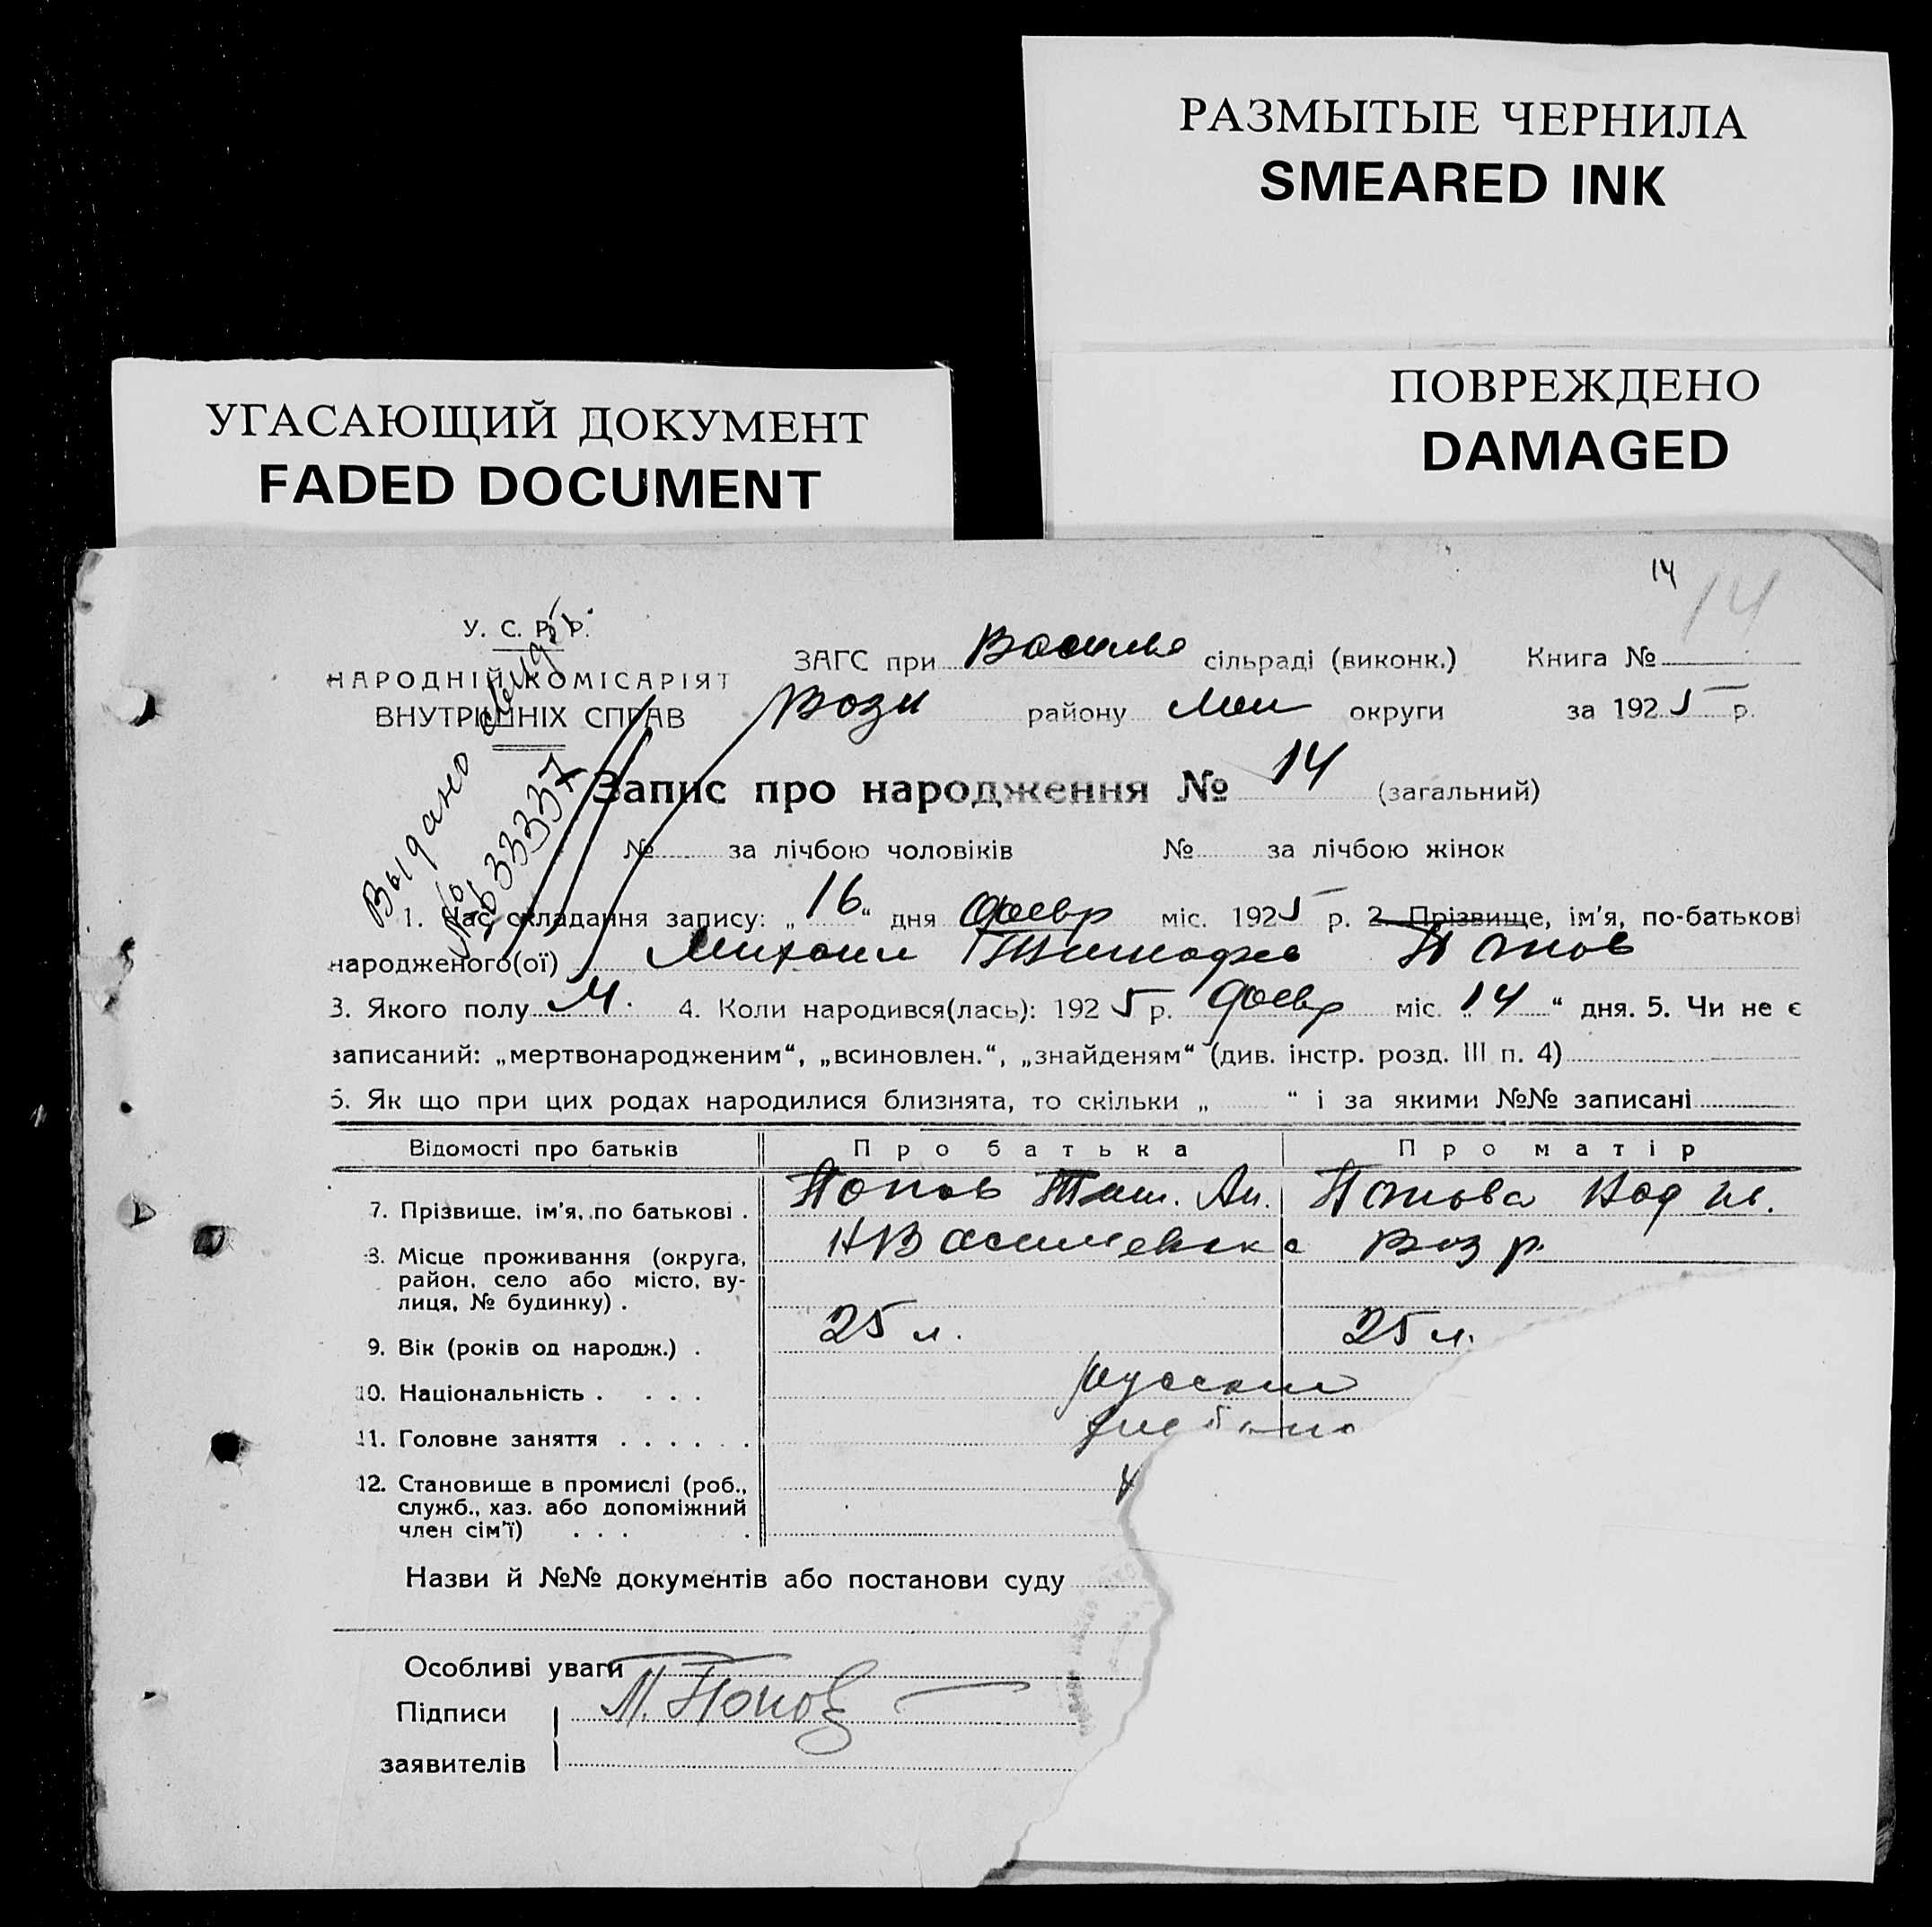 РАЗМЫТЫЕ ЧЕРНИЛА
SMEARED INK
ПОВРЕЖДЕНО
DAMAGED
УГАСАЮЩИЙ ДОКУМЕНТ
FADED DOCUMENT
14
14
У. С. Р. Р.
НАРОДНІЙ КОМІСАРІЯТ
ВНУТРІШНІХ СПРАВ
Выдано
№ 633337
ЗАГС при Василье сільраді (виконк.) Книга №
Возн району округи за 1925 р.
Запис про народження № 14 (загальний)
№ за лічбою чоловіків № за лічбою жінок
1. Час складання запису: „16“ дня февр міс. 1925 р. 2. Прізвище, ім'я, по-батькові
народженого(ої) Михаил Тимофее Попов
3. Якого полу М. 4. Коли народився(лась): 1925 р. февр міс. „14“ дня. 5. Чи не є
записаний: „мертвонародженим“, „всиновлен.“, „знайденям“ (див. інстр. розд. III п. 4)
6. Як що при цих родах народилися близнята, то скільки „ “ і за якими №№ записані
Відомості про батьків Про батька Про матір
7. Прізвище, ім'я, по батькові . Попов Тим. Ан. Попова
8. Місце проживання (округа, район, село або місто, ву-
лиця, № будинку) . НВасилевка Воз р.
9. Вік (років од народж.) . 25 л. 25 л.
10. Національність . . . . русские
11. Головне заняття . . . . . .
12. Становище в промислі (роб.,
служб., хаз. або допоміжний
член сім'ї) . . . .
Назви й №№ документів або постанови суду
Особливі уваги
Підписи М. Попов
заявителів